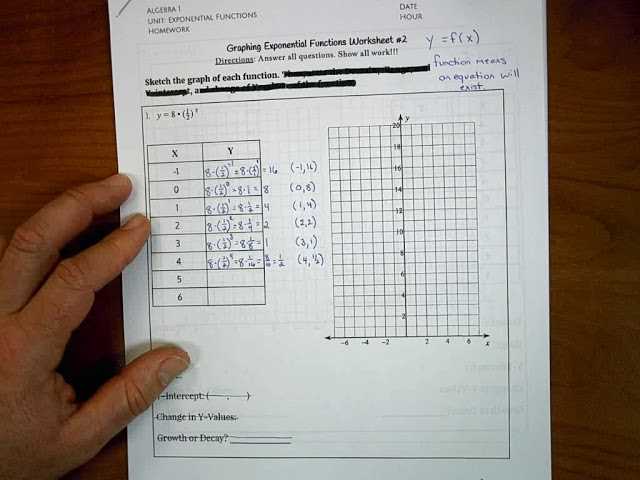 ALGEBRA 1
UNIT: EXPONENTIAL FUNCTIONS
HOMEWORK
DATE
HOUR
Graphing Exponential Functions Worksheet #2
Directions: Answer all questions. Show all work!!!
y = f(x)
function means
an equation will
exist
Sketch the graph of each function.
1. y = 8 • (1/2)ˣ
X Y
-1 8·(1/2)⁻¹=8·(2/1)¹ = 16 (-1,16)
0 8·(1/2)⁰=8·1= 8 (0,8)
1 8·(1/2)¹=8·1/2= 4 (1,4)
2 8·(1/2)²=8·1/4= 2 (2,2)
3 8·(1/2)³=8·1/8= 1 (3,1)
4 8·(1/2)⁴=8·1/16=8/16=1/2 (4,1/2)
5
6
y
20
18
16
14
12
10
8
6
4
2
-6 -4 -2 2 4 6 x
Y-Intercept: ( , )
Change in Y-Values:
Growth or Decay?